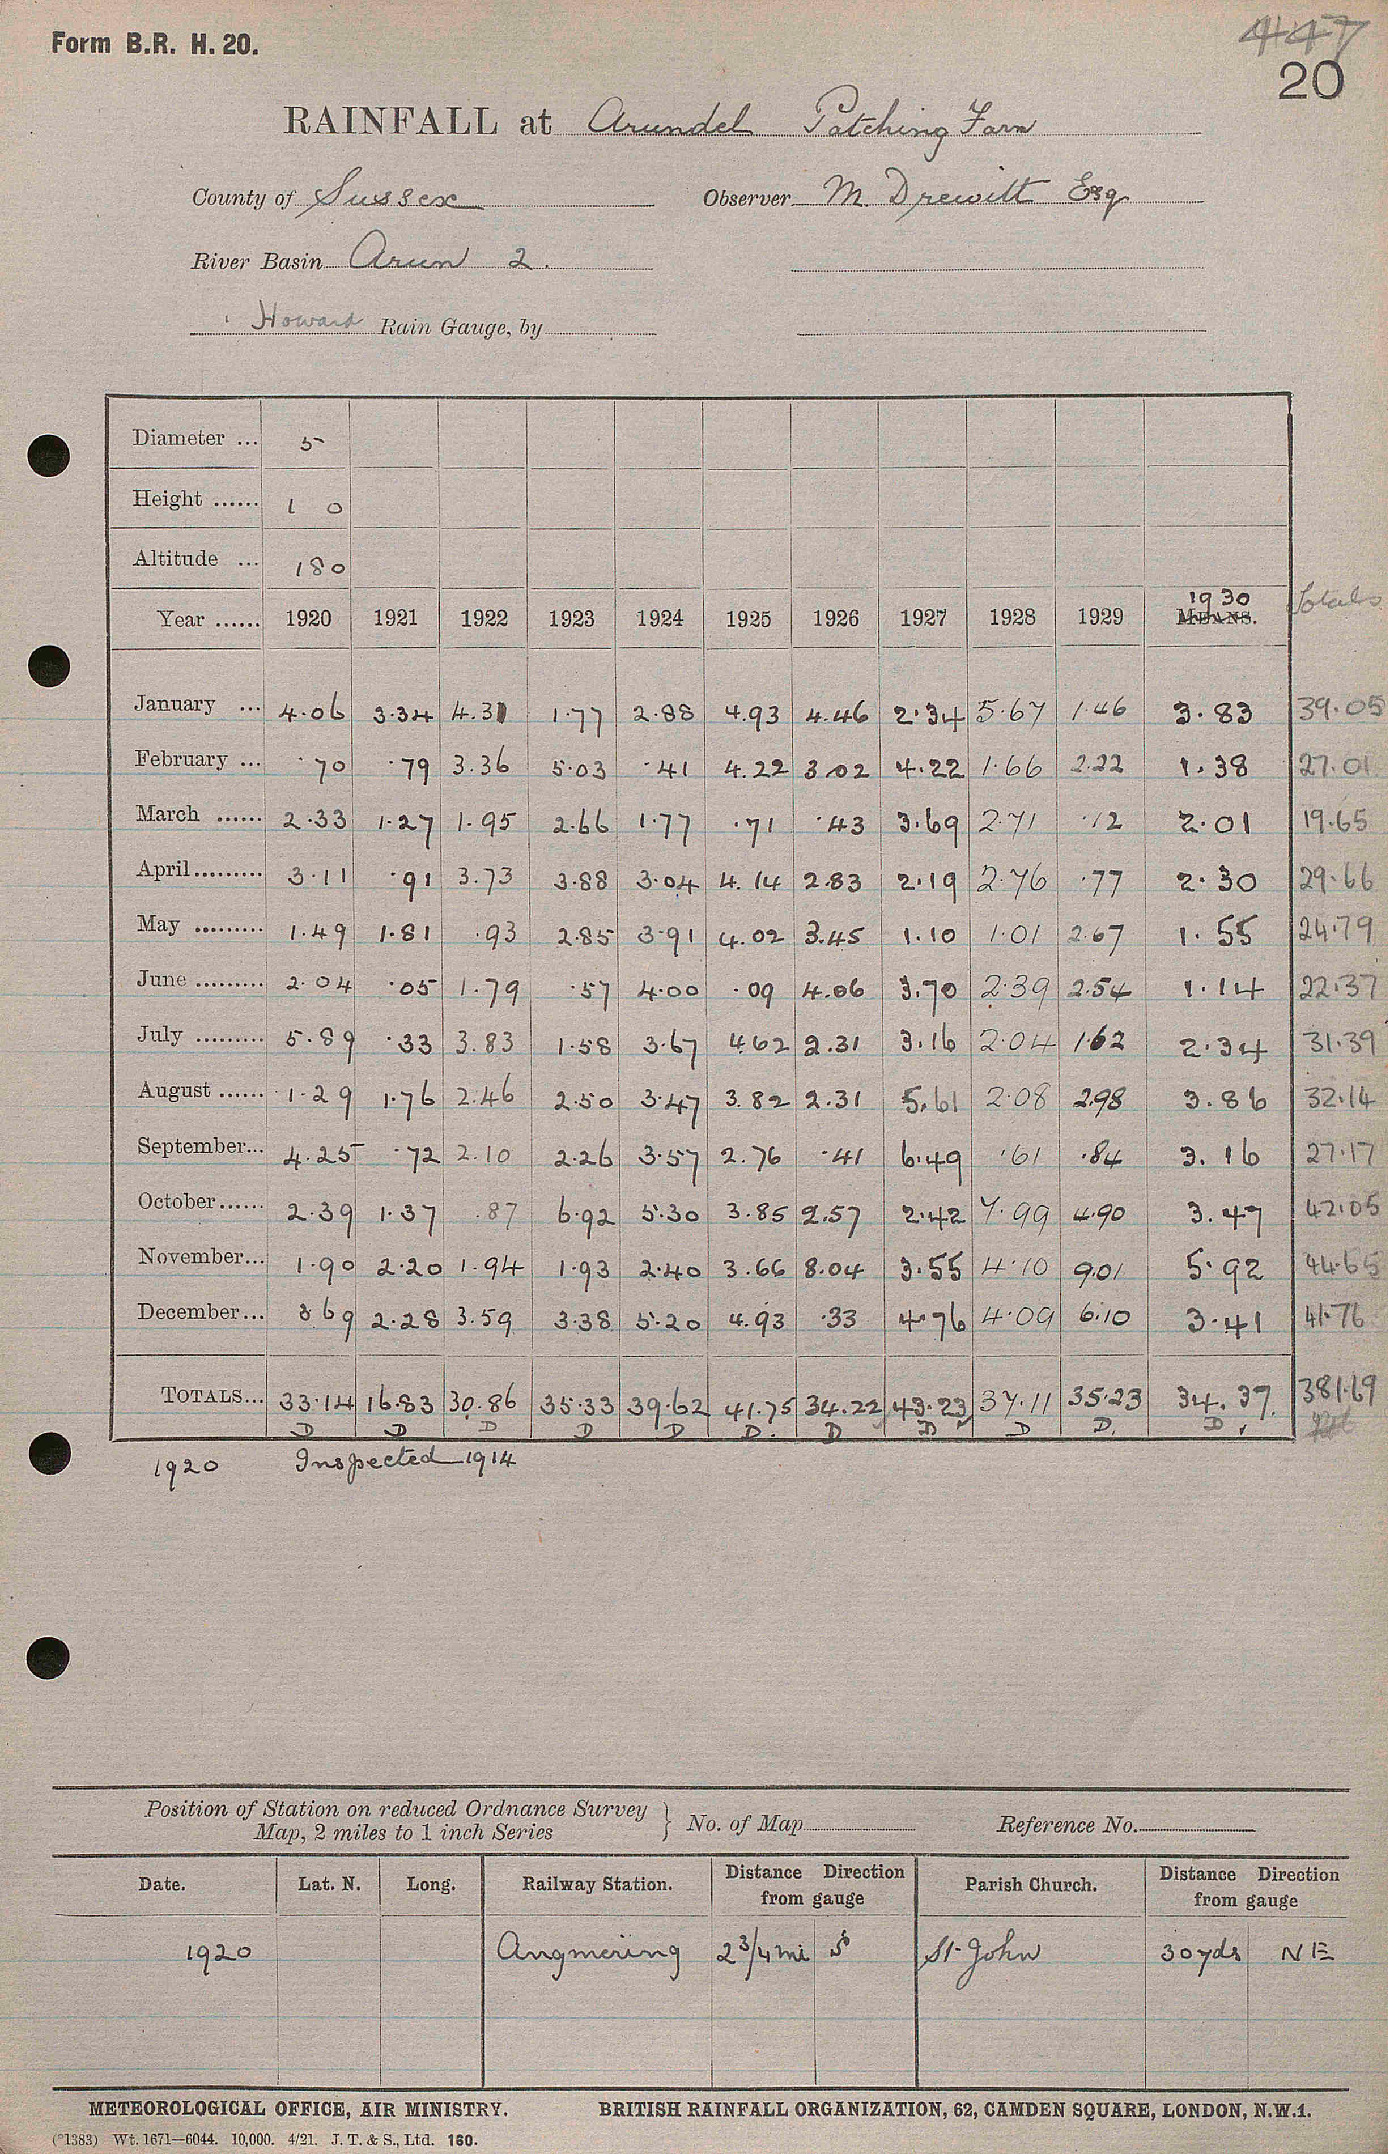 Form B.R. H. 20.
447
20
RAINFALL at Arundel Patching Farm
County of Sussex Observer M. Drewitt Esq
River Basin Arun 2.
Howard Rain Gauge, by
Diameter ... 5
Height ...... 1 0
Altitude ... 180
Year ...... 1920 1921 1922 1923 1924 1925 1926 1927 1928 1929 1930 MEANS. Totals
January ... 4.06 3.34 4.31 1.77 2.88 4.93 4.46 2.34 5.67 1.46 3.83 39.05
February ... .70 .79 3.36 5.03 .41 4.22 3.02 4.22 1.66 2.22 1.38 27.01
March ...... 2.33 1.27 1.95 2.66 1.77 .71 .43 3.69 2.71 .12 2.01 19.65
April......... 3.11 .91 3.73 3.88 3.04 4.14 2.83 2.19 2.76 .77 2.30 29.66
May ......... 1.49 1.81 .93 2.85 3.91 4.02 3.45 1.10 1.01 2.67 1.55 24.79
June ......... 2.04 .05 1.79 .57 4.00 .09 4.06 3.70 2.39 2.54 1.14 22.37
July ......... 5.89 .33 3.83 1.58 3.67 4.62 2.31 3.16 2.04 1.62 2.34 31.39
August ...... 1.29 1.76 2.46 2.50 3.47 3.82 2.31 5.61 2.08 2.98 3.86 32.14
September... 4.25 .72 2.10 2.26 3.57 2.76 .41 6.49 .61 .84 3.16 27.17
October...... 2.39 1.37 .87 6.92 5.30 3.85 2.57 2.42 7.99 4.90 3.47 42.05
November... 1.90 2.20 1.94 1.93 2.40 3.66 8.04 3.55 4.10 9.01 5.92 44.65
December... 3 69 2.28 3.59 3.38 5.20 4.93 .33 4.76 4.09 6.10 3.41 41.76
TOTALS... 33.14 16.83 30.86 35.33 39.62 41.75 34.22 43.23 37.11 35.23 34.37 381.69
D D D D D D. D D D D. D
1920 Inspected 1914
Position of Station on reduced Ordnance Survey
Map, 2 miles to 1 inch Series } No. of Map Reference No.
Date. Lat. N. Long. Railway Station. Distance Direction from gauge Parish Church. Distance Direction from gauge
1920 Angmering 2 3/4 mi S St. John 30 yds NE
METEOROLOGICAL OFFICE, AIR MINISTRY. BRITISH RAINFALL ORGANIZATION, 62, CAMDEN SQUARE, LONDON, N.W.1.
(*1383) Wt. 1671—6044. 10,000. 4/21. J. T. & S., Ltd. 160.